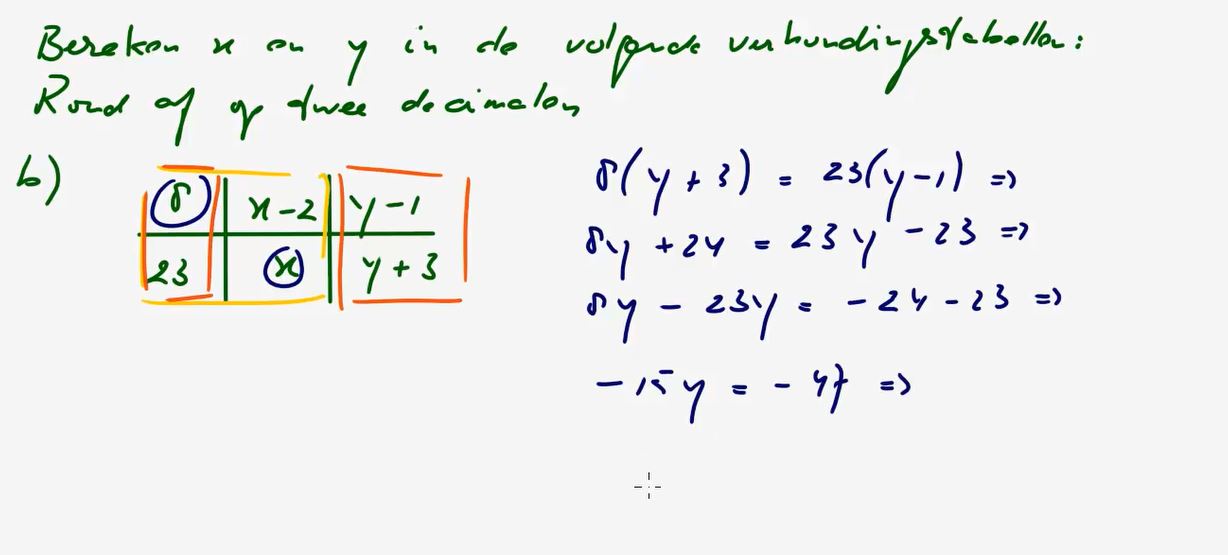 Bereken x en y in de volgende verhoudingstabellen:
Rond af op twee decimalen
b)
8 x-2 y-1
23 x y+3
8(y+3) = 23(y-1) =>
8y +24 = 23y -23 =>
8y - 23y = -24 -23 =>
-15y = -47 =>